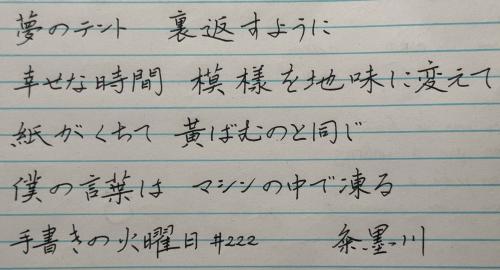 夢のテント　裏返すように
幸せな時間　模様を地味に変えて
紙がくちて　黄ばむのと同じ
僕の言葉は　マシンの中で凍る
手書きの火曜日#222　粂墨川